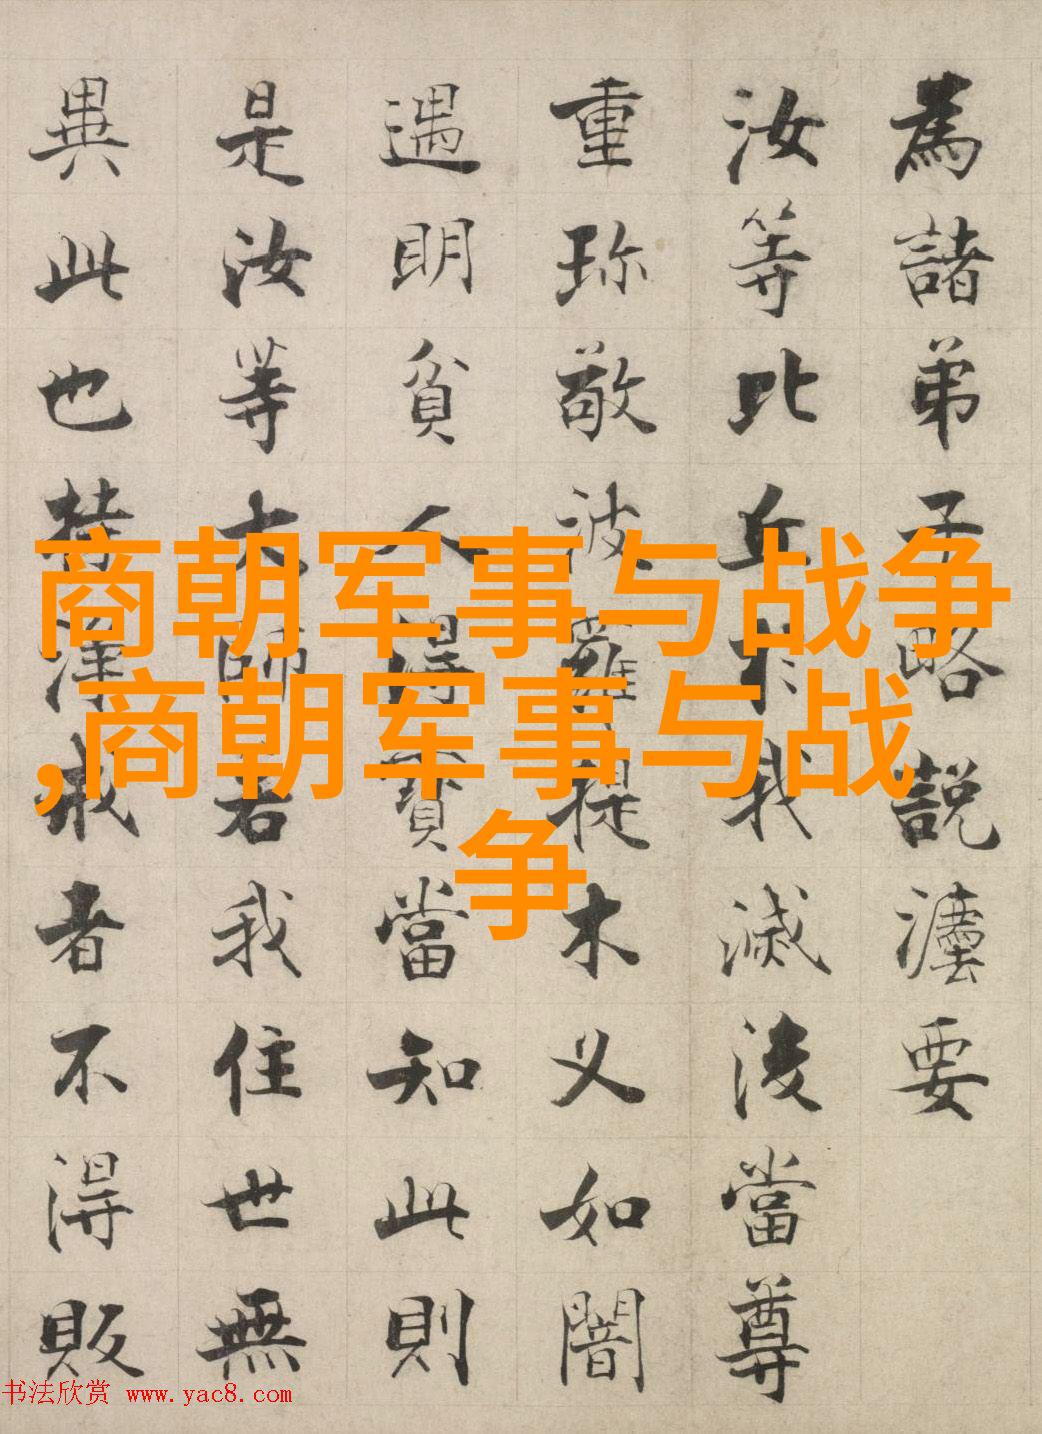 為諸弟子略說法要
汝等比丘於我滅後當尊
重珎敬波羅提木叉如闇
遇明貧人得寶當知此則
是汝等大師若我住世無
異此也持淨戒者不得販
商朝军事与战争
,商朝军事与战
争
书法欣赏 www.yac8.com